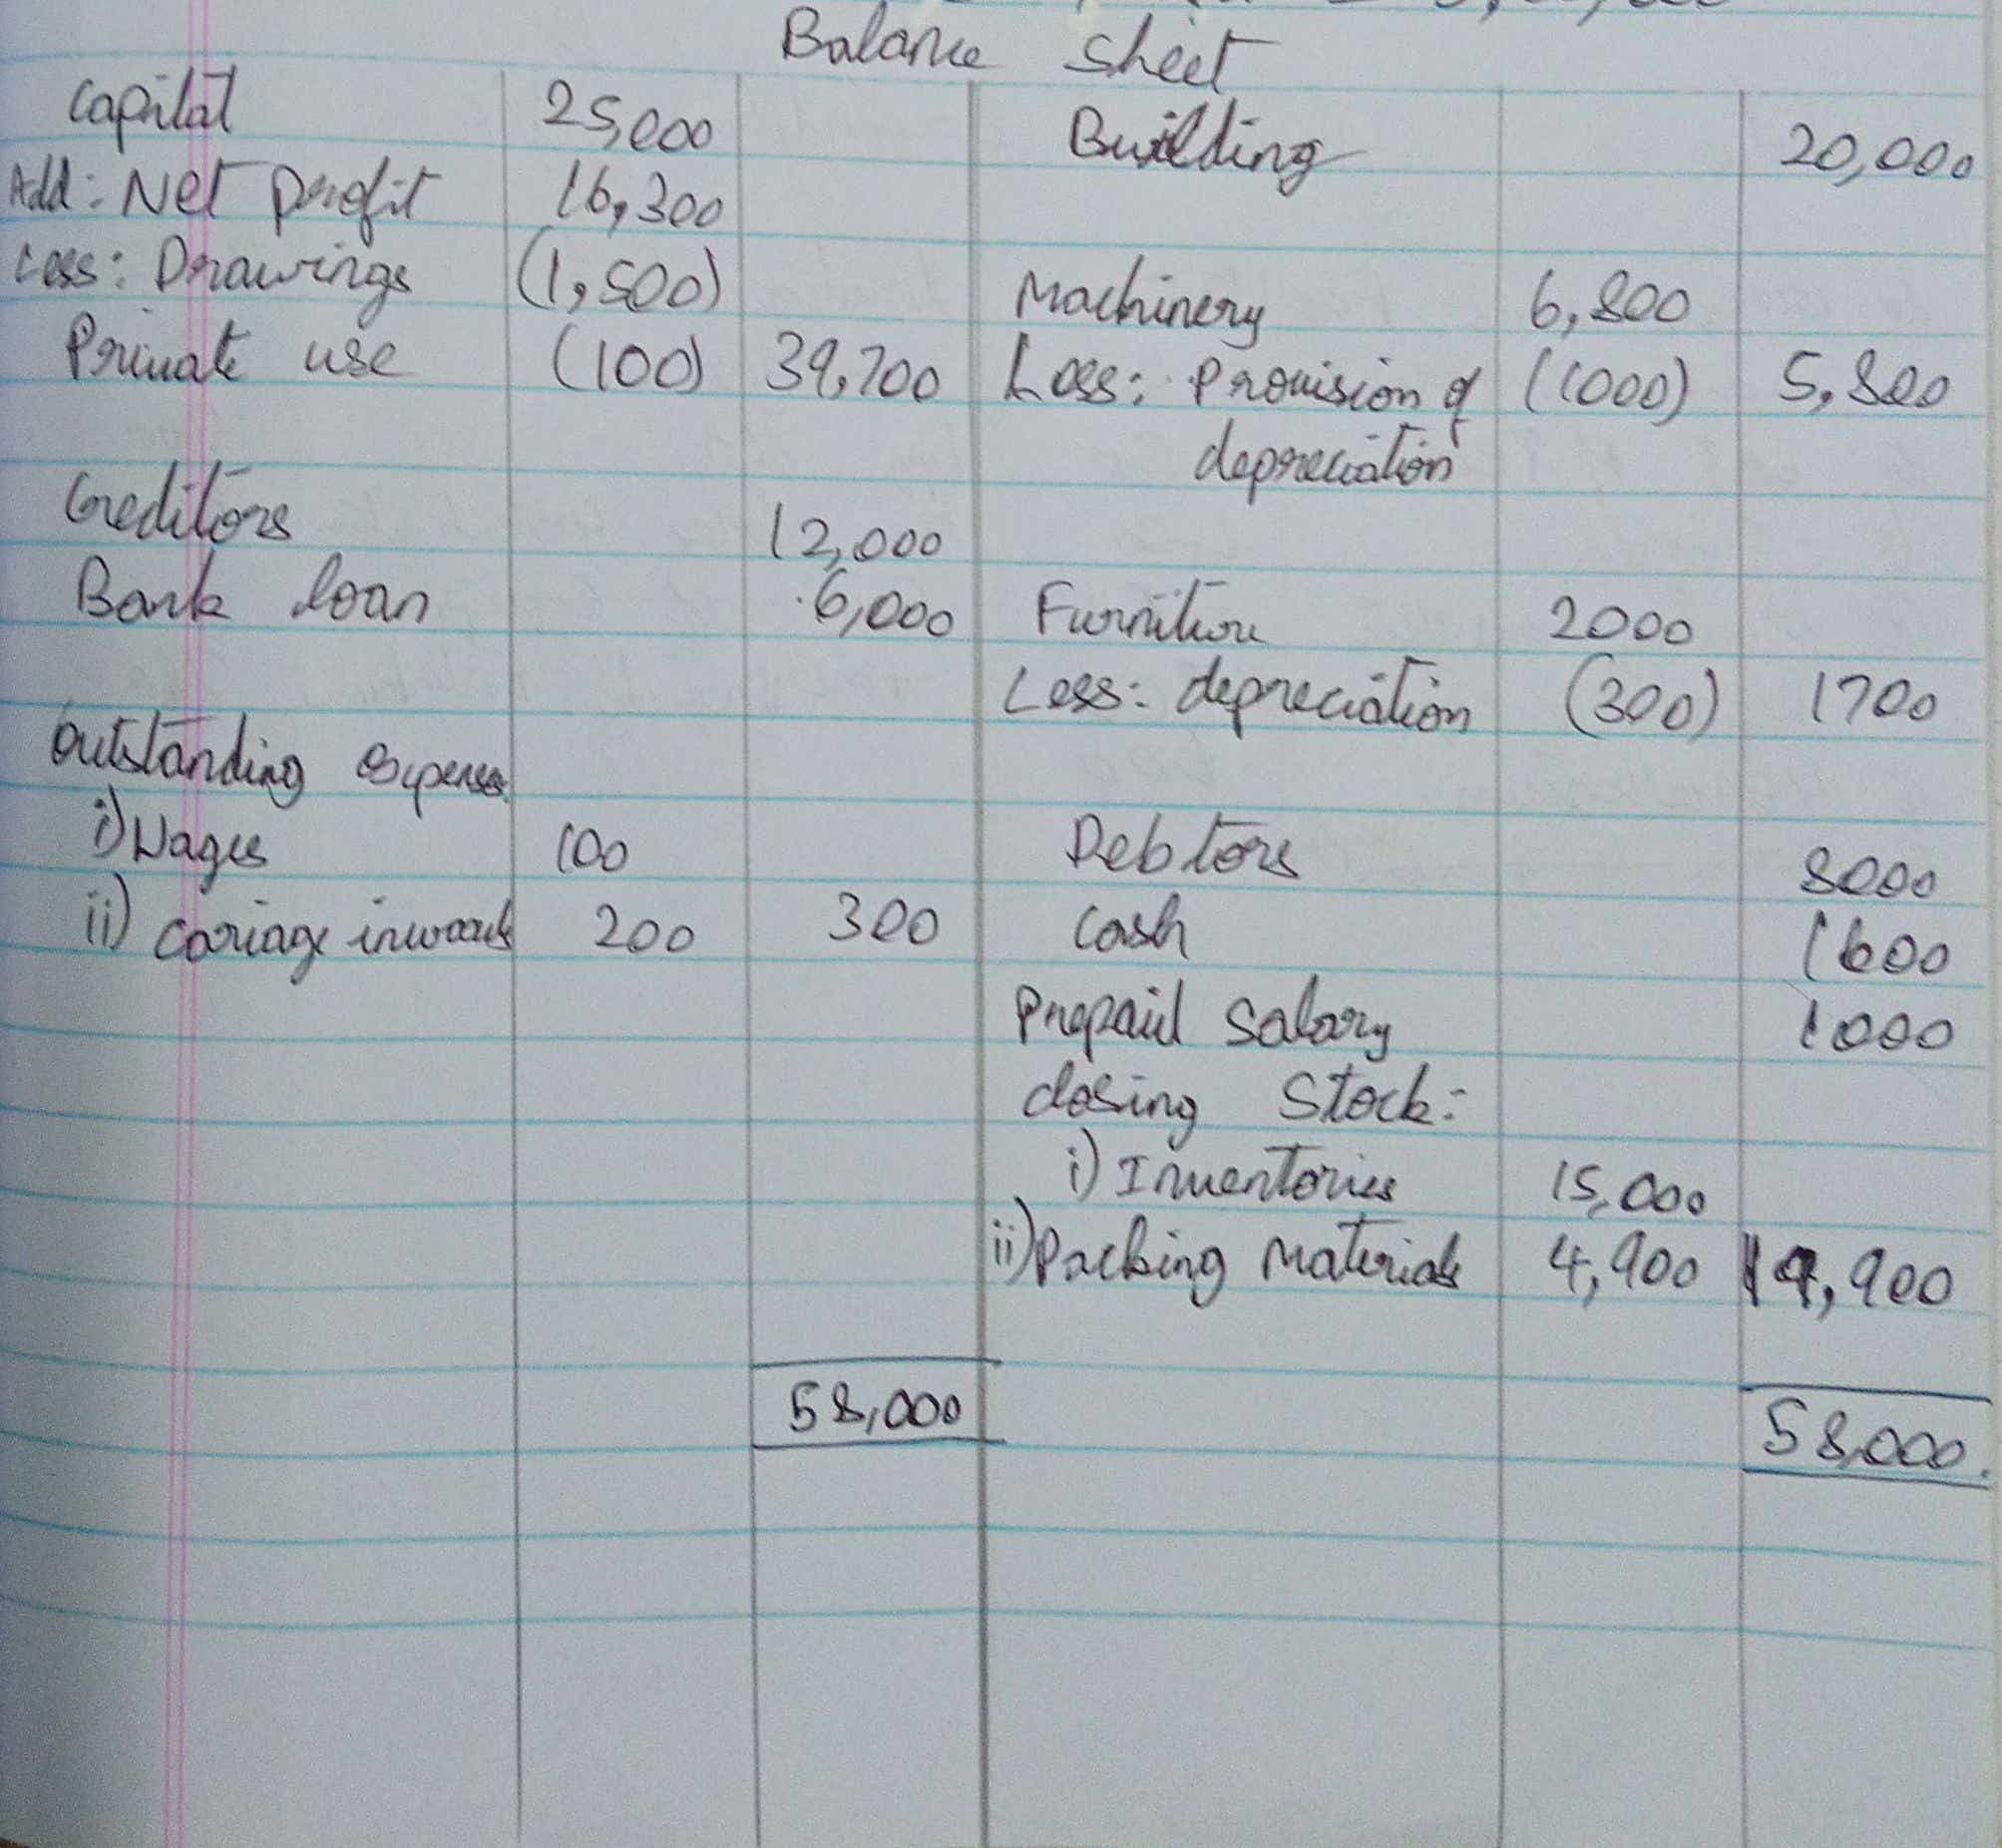 Balance Sheet
Capital 25,000 Building 20,000
Add: Net profit 16,300
Less: Drawings (1,500) Machinery 6,800
Private use (100) 39,700 Less: Provision of (1000) 5,800
depreciation
Creditors 12,000
Bank loan 6,000 Furniture 2000
Less: depreciation (300) 1700
Outstanding expenses
i) Wages 100 Debtors 8000
ii) Cariage inwards 200 300 Cash 1600
Prepaid Salary 1000
closing Stock:-
i) Inventories 15,000
ii) Packing Materials 4,900 19,900
58,000 58,000.